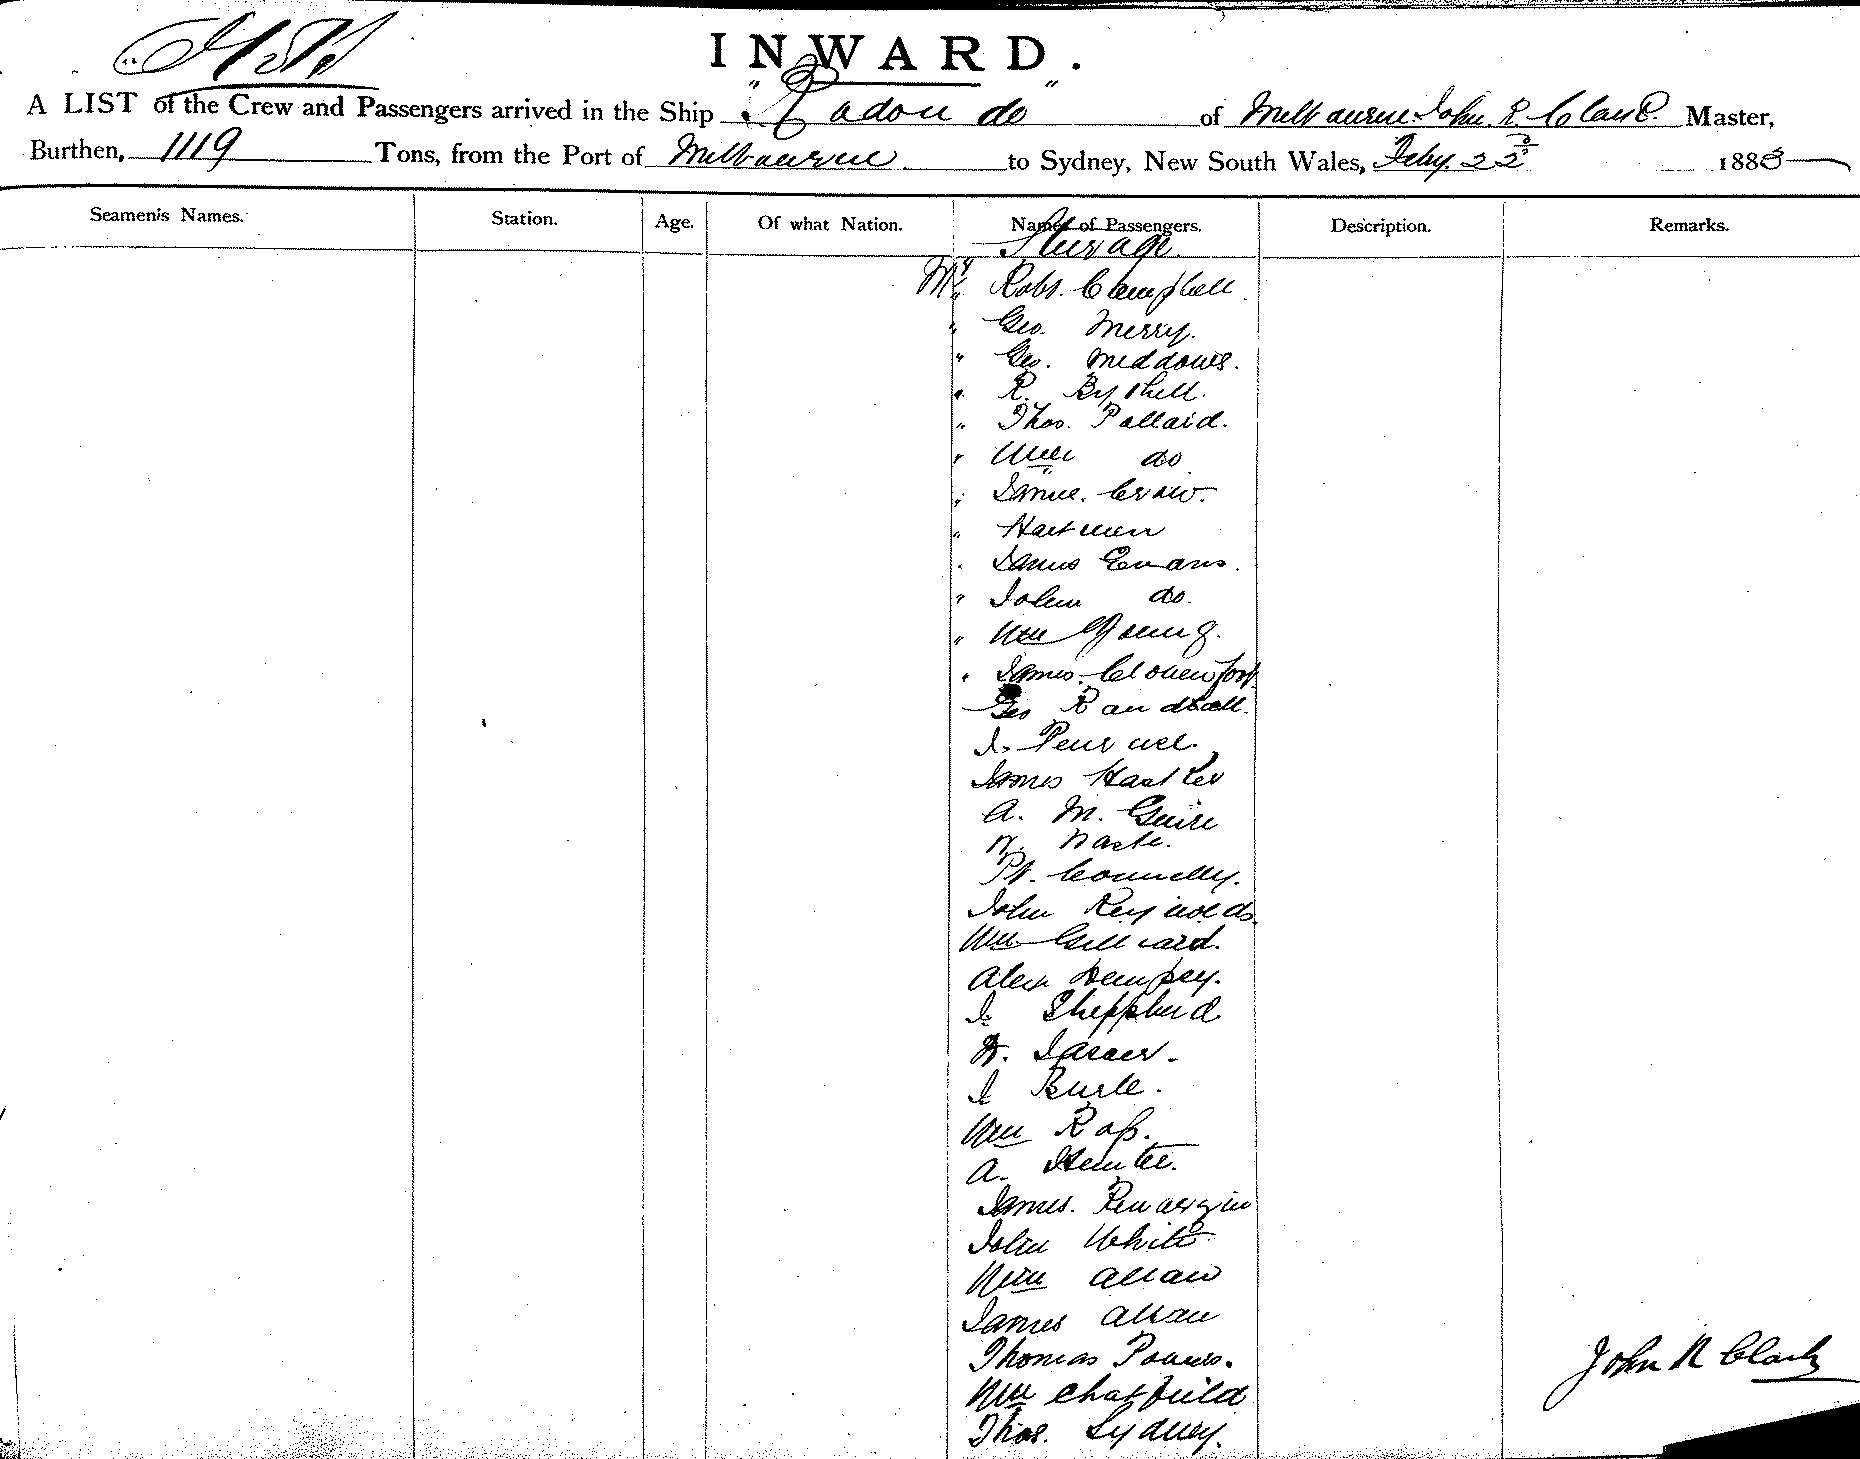 INWARD.
A LIST of the Crew and Passengers arrived in the Ship "Rodondo" of Melbourne John R. Clark. Master,
Burthen, 1119 Tons, from the Port of Melbourne to Sydney, New South Wales, Feby. 22d 1883
Seamen's Names. Station. Age. Of what Nation. Names of Passengers. Description. Remarks.
Steerage
Mr Robt. Campbell
" Geo. Merry.
" Geo. Meddows.
" R. Bythell.
" Thos. Pollard.
" Wm do
" Crow.
" Hartmen
" James Evans.
" John do
" Wm Young.
" James
Geo Randall.
J.
James
A. M. Guire
Pt. Connelly.
John Reynolds.
Wm
Alex Dempsey.
J Shepperd
J Burke.
Wm Ross.
A.
James.
John White
Wm Allan
James Allan
Thomas Powers.
Wm Chatfield
Thos. Sydney.
John R Clark